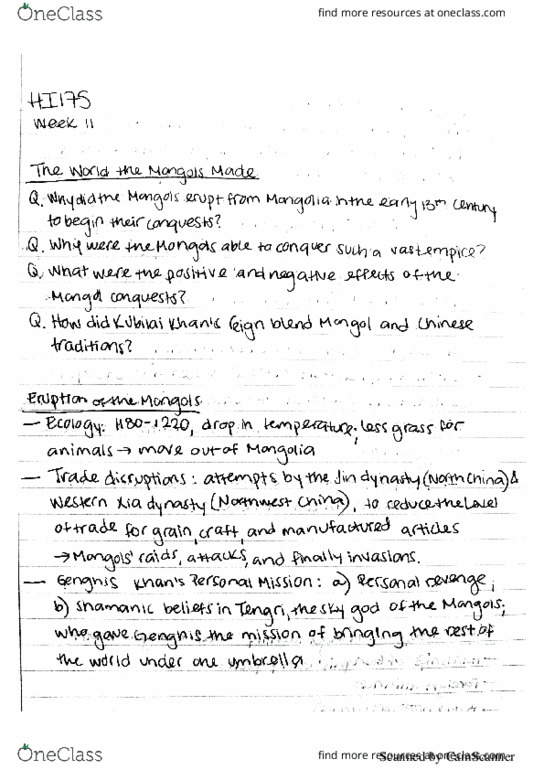 OneClass
find more resources at oneclass.com
HI175
Week 11
The World the Mongols Made
Q. Why did the Mongols erupt from Mongolia in the early 13th century
to begin their conquests?
Q. Why were the Mongols able to conquer such a vast empire?
Q. What were the positive and negative effects of the
Mongol conquests?
Q. How did Kubilai Khan's reign blend Mongol and Chinese
traditions?
Eruption of the Mongols
— Ecology: 1180-1220, drop in temperature; less grass for
animals → move out of Mongolia
— Trade disruptions: attempts by the Jin dynasty (North China) &
Western Xia dynasty (Northwest China), to reduce the level
of trade for grain, craft, and manufactured articles
→ Mongols' raids, attacks, and finally invasions.
— Genghis Khan's Personal Mission: a) Personal revenge;
b) shamanic beliefs in Tengri, the sky god of the Mongols,
who gave Genghis the mission of bringing the rest of
the world under one umbrella
OneClass
find more resources at oneclass.com
Scanned by CamScanner